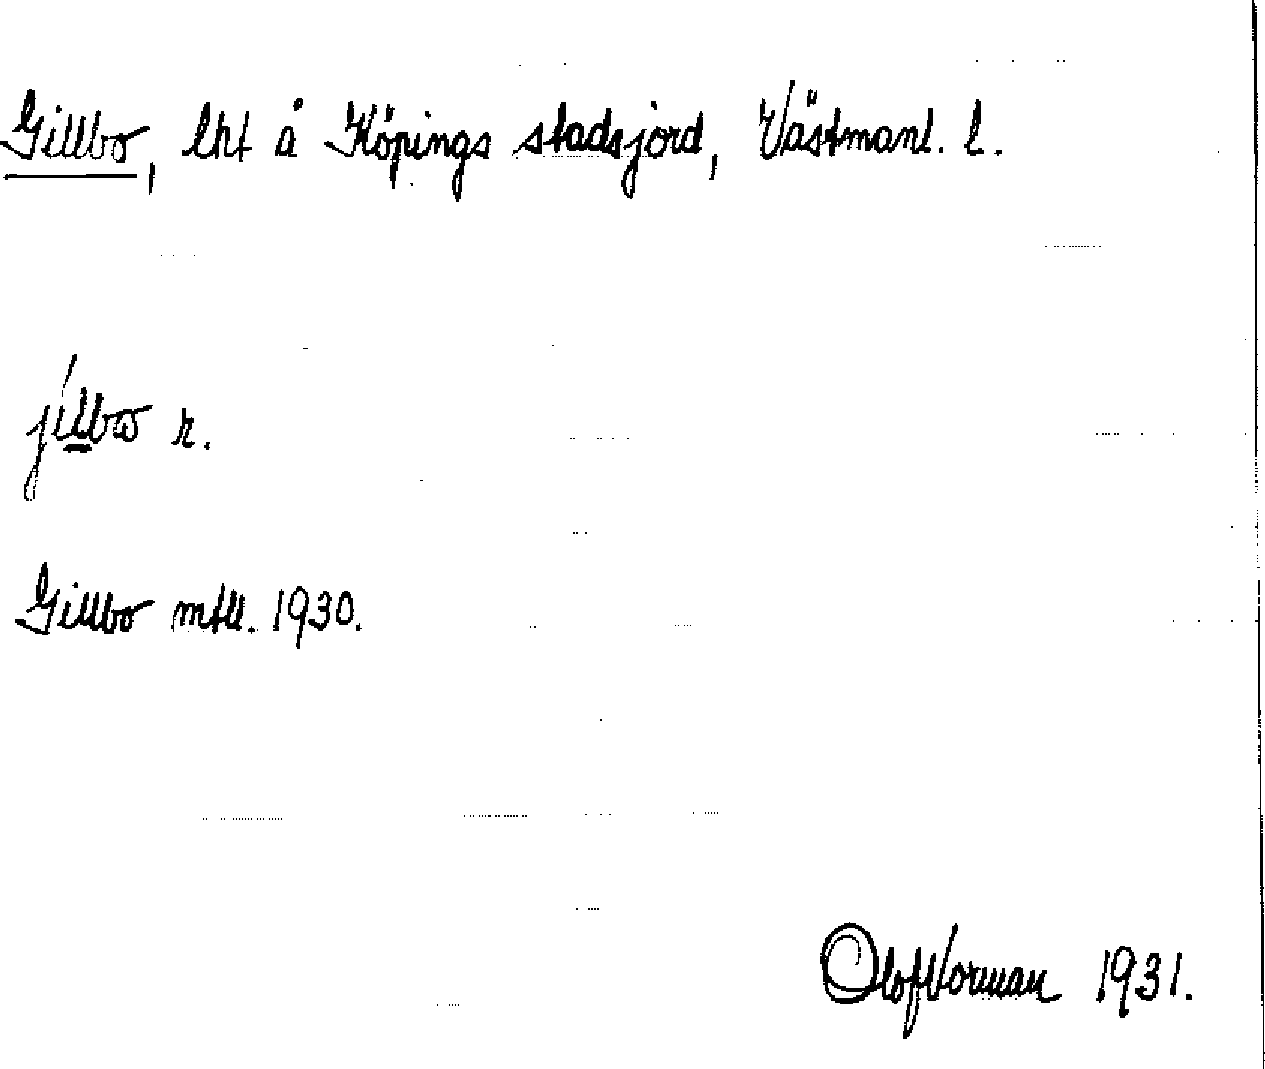 Gillbo, lht å Köpings stadsjord, Västmanl. l.
jíllbω r.
Gillbo mtll. 1930.
Olof Norman 1931.